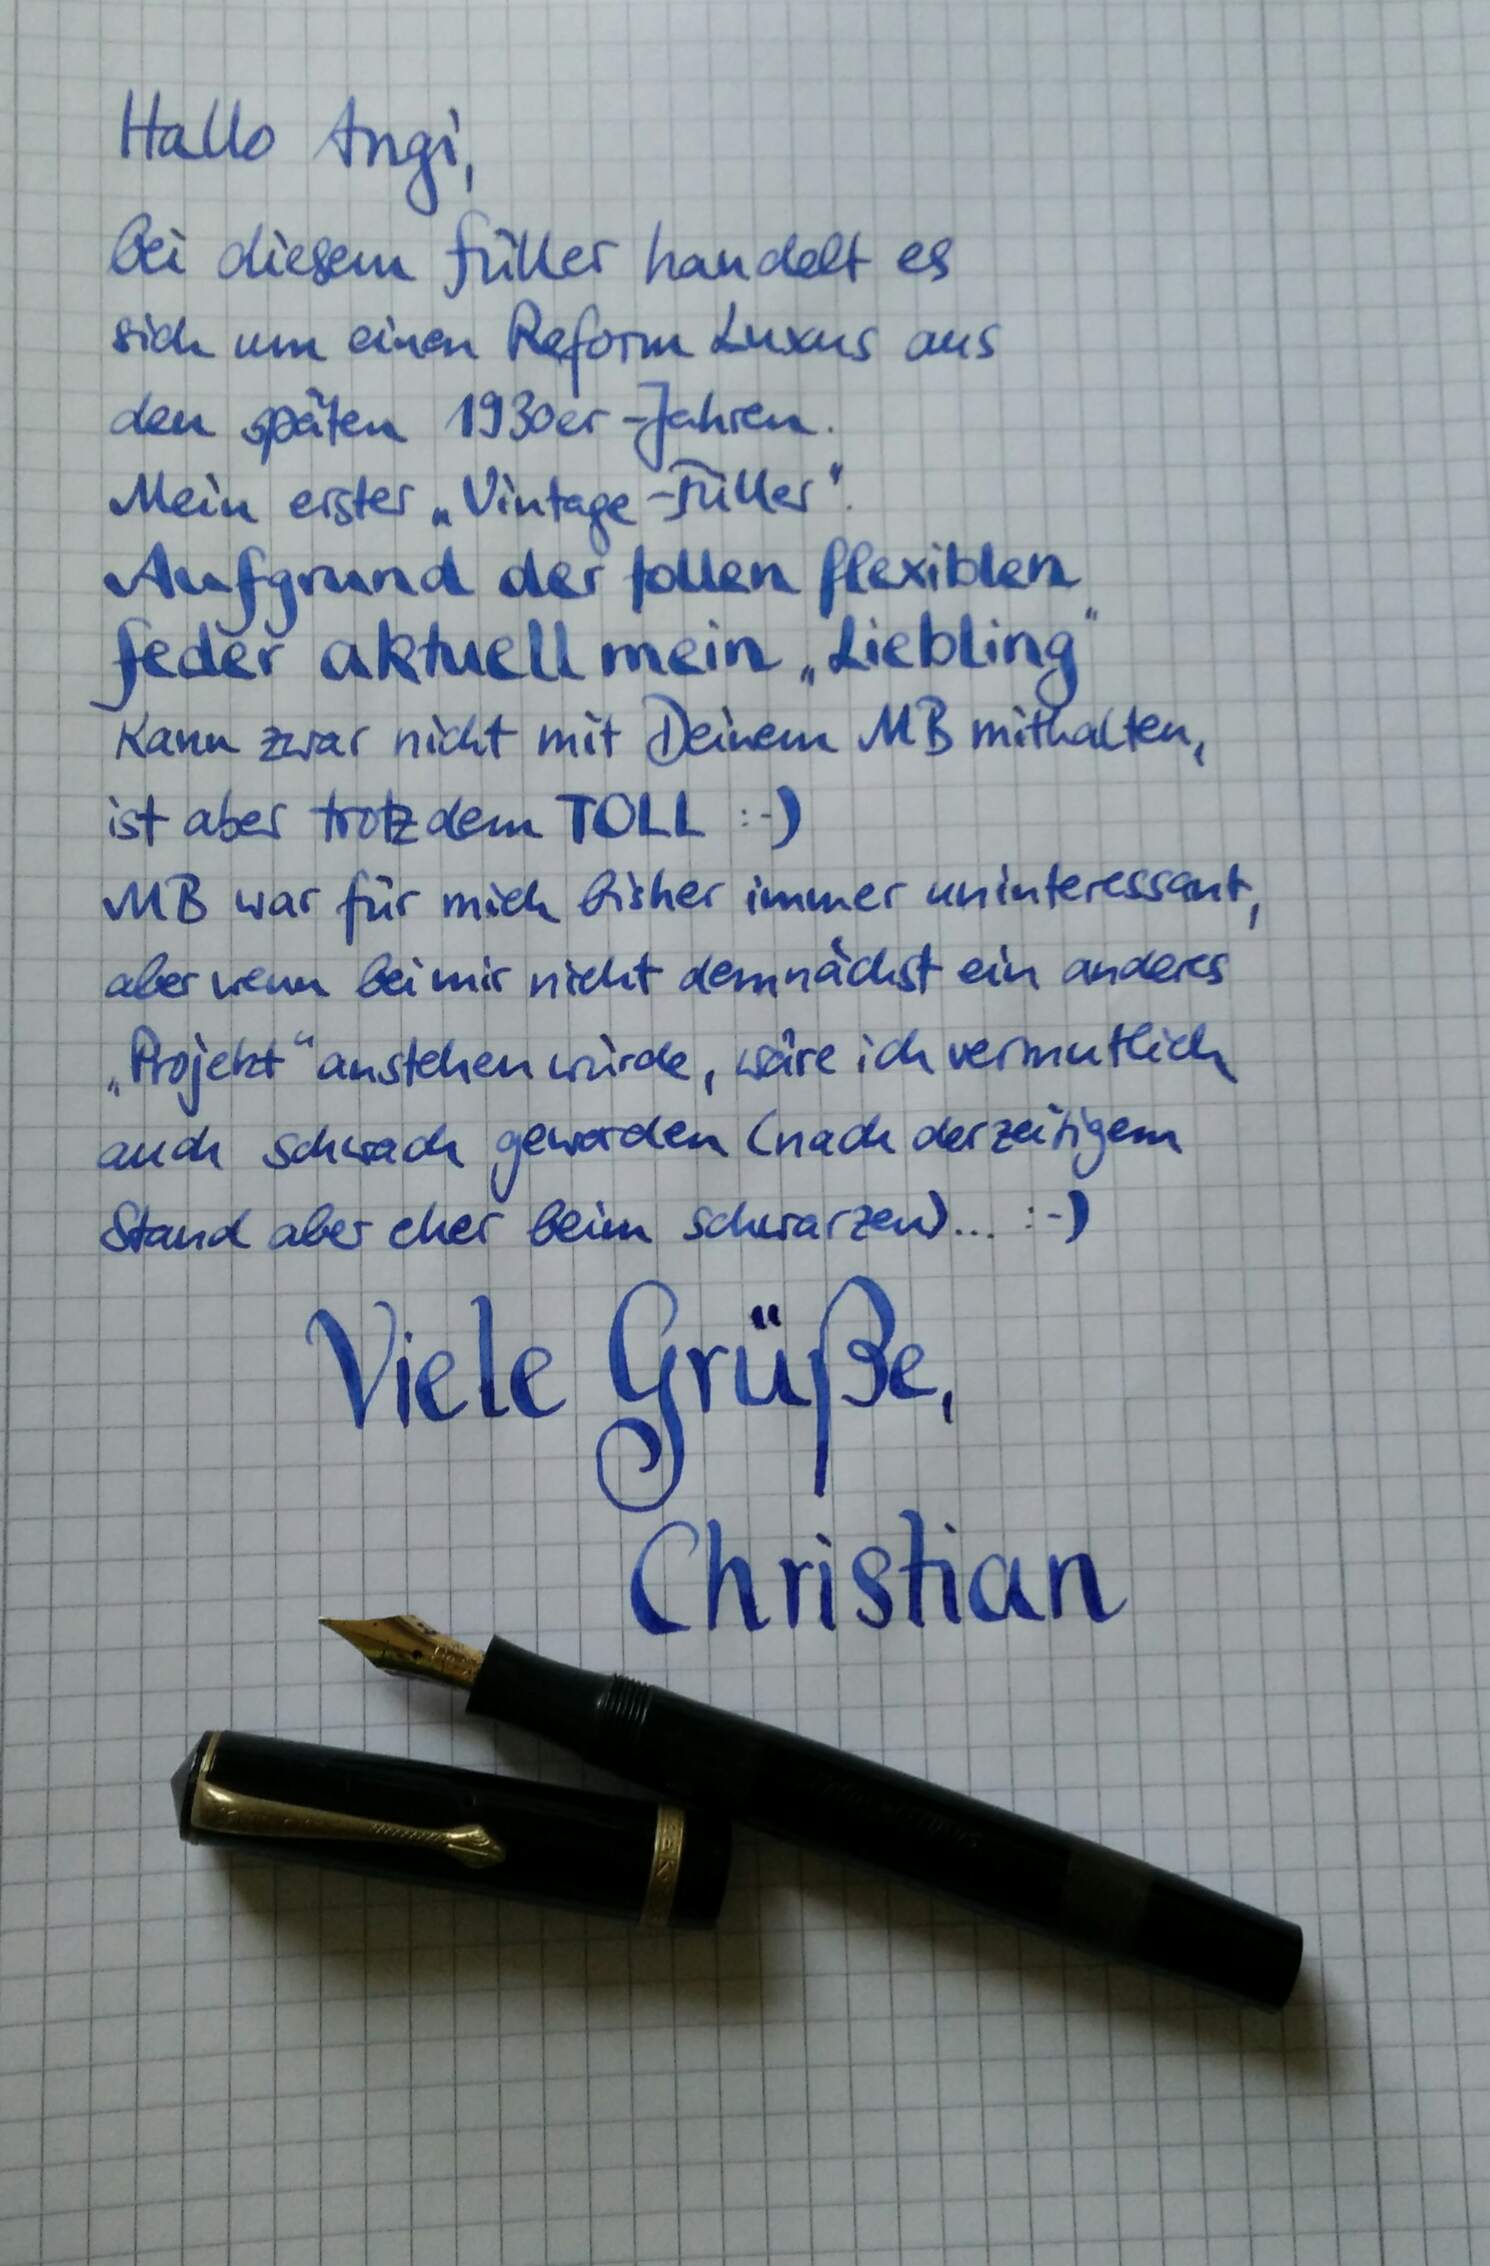 Hallo Angi,
bei diesem Füller handelt es
sich um einen Reform Luxus aus
den späten 1930er-Jahren.
Mein erster „Vintage-Füller“.
Aufgrund der tollen flexiblen
Feder aktuell mein „Liebling“
Kann zwar nicht mit Deinem MB mithalten,
ist aber trotzdem TOLL :-)
MB war für mich bisher immer uninteressant,
aber wenn bei mir nicht demnächst ein anderes
„Projekt“ anstehen würde, wäre ich vermutlich
auch schwach geworden (nach derzeitigem
Stand aber eher beim schwarzen)... :-)
Viele Grüße,
Christian